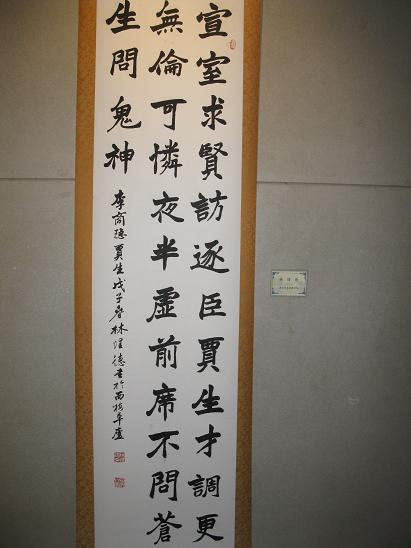 宣室求賢訪逐臣賈生才調更
無倫可憐夜半虛前席不問蒼
生問鬼神
李商隱賈生戊子春林涅德書於西梅草廬